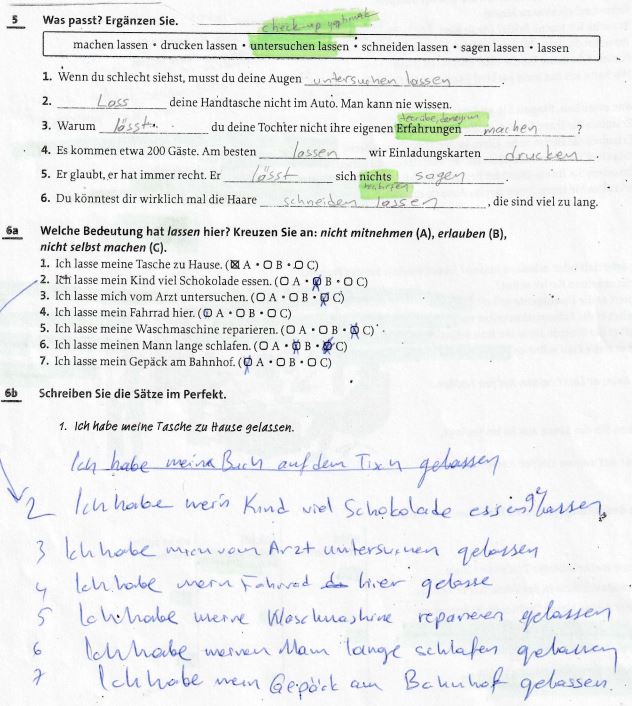 5 Was passt? Ergänzen Sie.
check-up yapmak
machen lassen • drucken lassen • untersuchen lassen • schneiden lassen • sagen lassen • lassen
1. Wenn du schlecht siehst, musst du deine Augen untersuchen lassen.
2. Lass deine Handtasche nicht im Auto. Man kann nie wissen.
3. Warum lässt du deine Tochter nicht ihre eigenen Erfahrungen machen ?
4. Es kommen etwa 200 Gäste. Am besten lassen wir Einladungskarten drucken.
5. Er glaubt, er hat immer recht. Er lässt sich nichts sagen.
6. Du könntest dir wirklich mal die Haare schneiden lassen, die sind viel zu lang.
6a Welche Bedeutung hat lassen hier? Kreuzen Sie an: nicht mitnehmen (A), erlauben (B),
nicht selbst machen (C).
1. Ich lasse meine Tasche zu Hause. (☒ A • O B • O C)
2. Ich lasse mein Kind viel Schokolade essen. (O A • O B • O C)
3. Ich lasse mich vom Arzt untersuchen. (O A • O B • O C)
4. Ich lasse mein Fahrrad hier. (O A • O B • O C)
5. Ich lasse meine Waschmaschine reparieren. (O A • O B • O C)
6. Ich lasse meinen Mann lange schlafen. (O A • O B • O C)
7. Ich lasse mein Gepäck am Bahnhof. (O A • O B • O C)
6b Schreiben Sie die Sätze im Perfekt.
1. Ich habe meine Tasche zu Hause gelassen.
Ich habe meine Buch auf dem Tisch gelassen
2 Ich habe mein Kind viel Schokolade essen gelassen
3 Ich habe mich vom Arzt untersuchen gelassen
4 Ich habe mein Fahrrad hier gelasse
5 Ich habe meine Waschmashine reparieren gelassen
6 Ich habe meinen Mann lange schlafen gelassen
7 Ich habe mein Gepäck am Bahnhof gelassen.